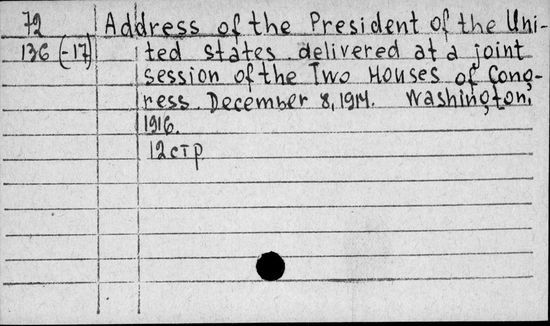 72 Address of the President of the Uni-
136 (-17) ted States delivered at a joint
session of the Two Houses of Cong-
ress December 8, 1914. Washington,
1916.
12 стр